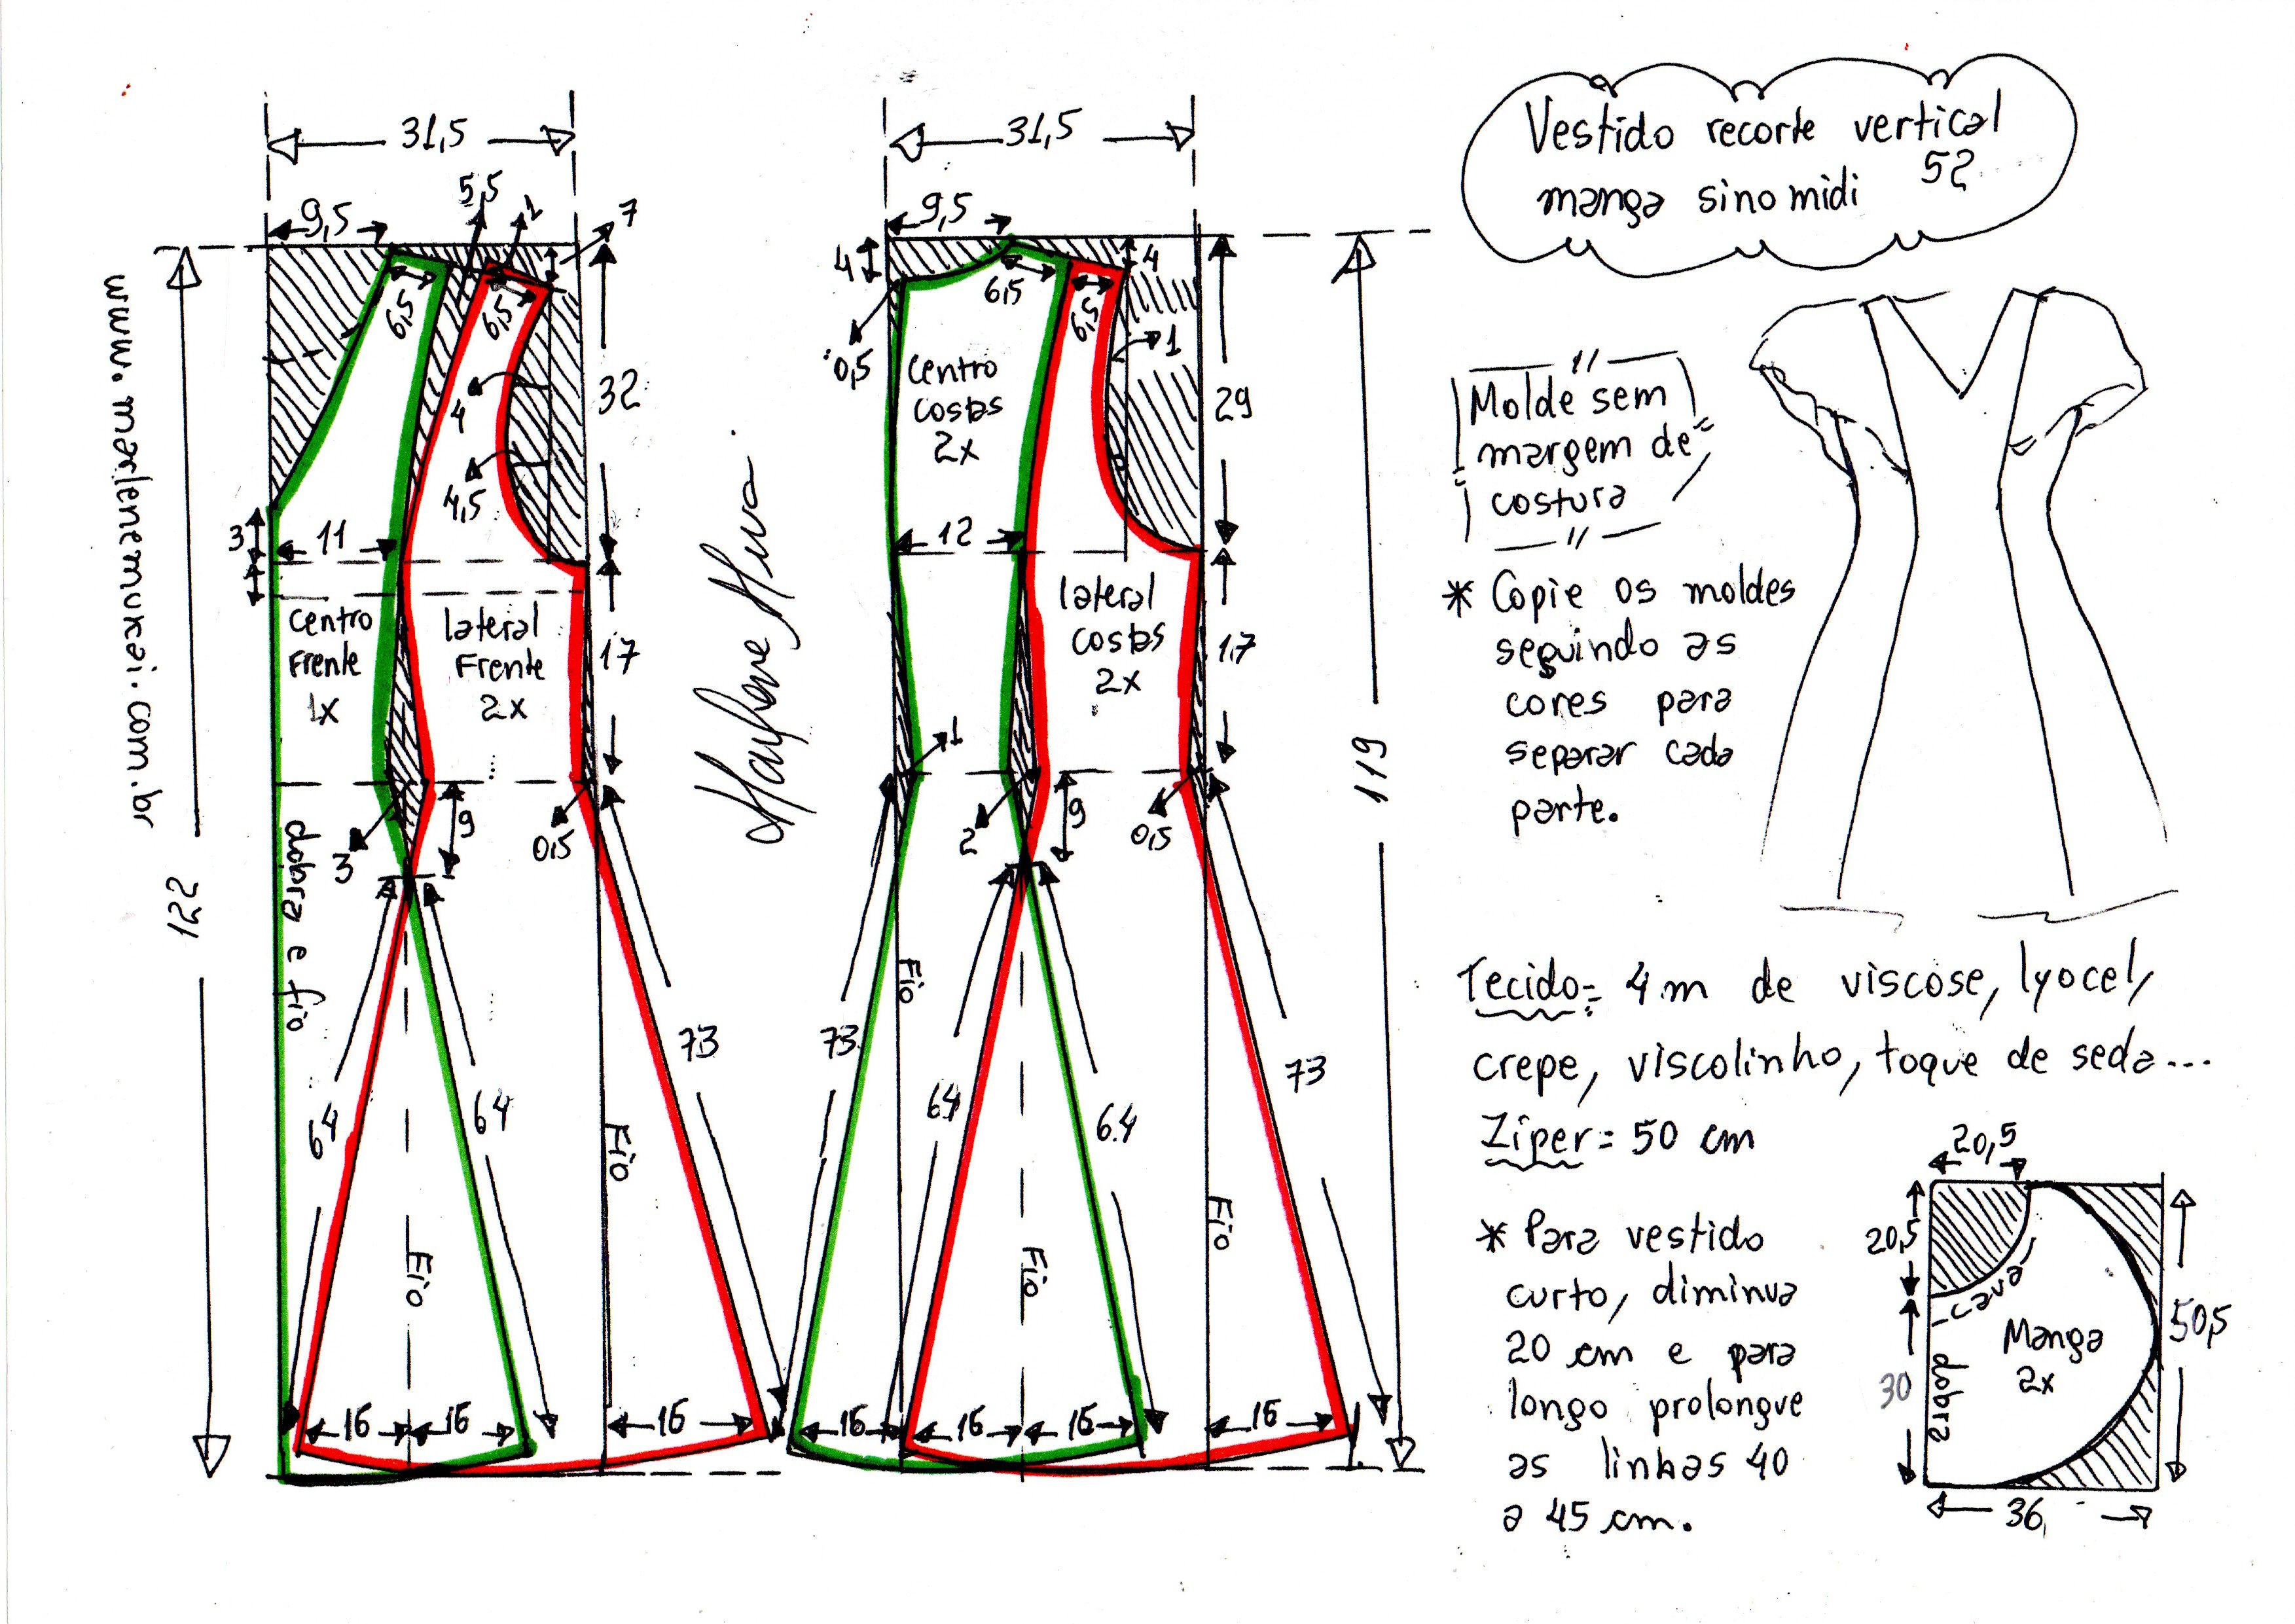 Vestido recorte vertical
52
manga sino midi
www.marlenemukai.com.br
31,5
9,5
5,5
1
7
6,5
6,5
4
4,5
32
3
11
centro
Frente
1x
lateral
Frente
2x
17
3
9
0,5
dobra e fio
122
64
64
73
Fio
Fio
16
16
16
31,5
9,5
4
4
6,5
6,5
0,5
1
centro
costas
2x
29
12
lateral
costas
2x
17
1
2
9
0,5
119
Fio
73
64
64
73
Fio
Fio
16
16
16
16
Molde sem
margem de
costura
* Copie os moldes
seguindo as
cores para
separar cada
parte.
Tecido= 4 m de viscose, lyocel,
crepe, viscolinho, toque de seda...
Zíper= 50 cm
* Para vestido
curto, diminua
20 cm e para
longo prolongue
as linhas 40
a 45 cm.
20,5
20,5
cava
Manga
2x
50,5
30
dobra
36